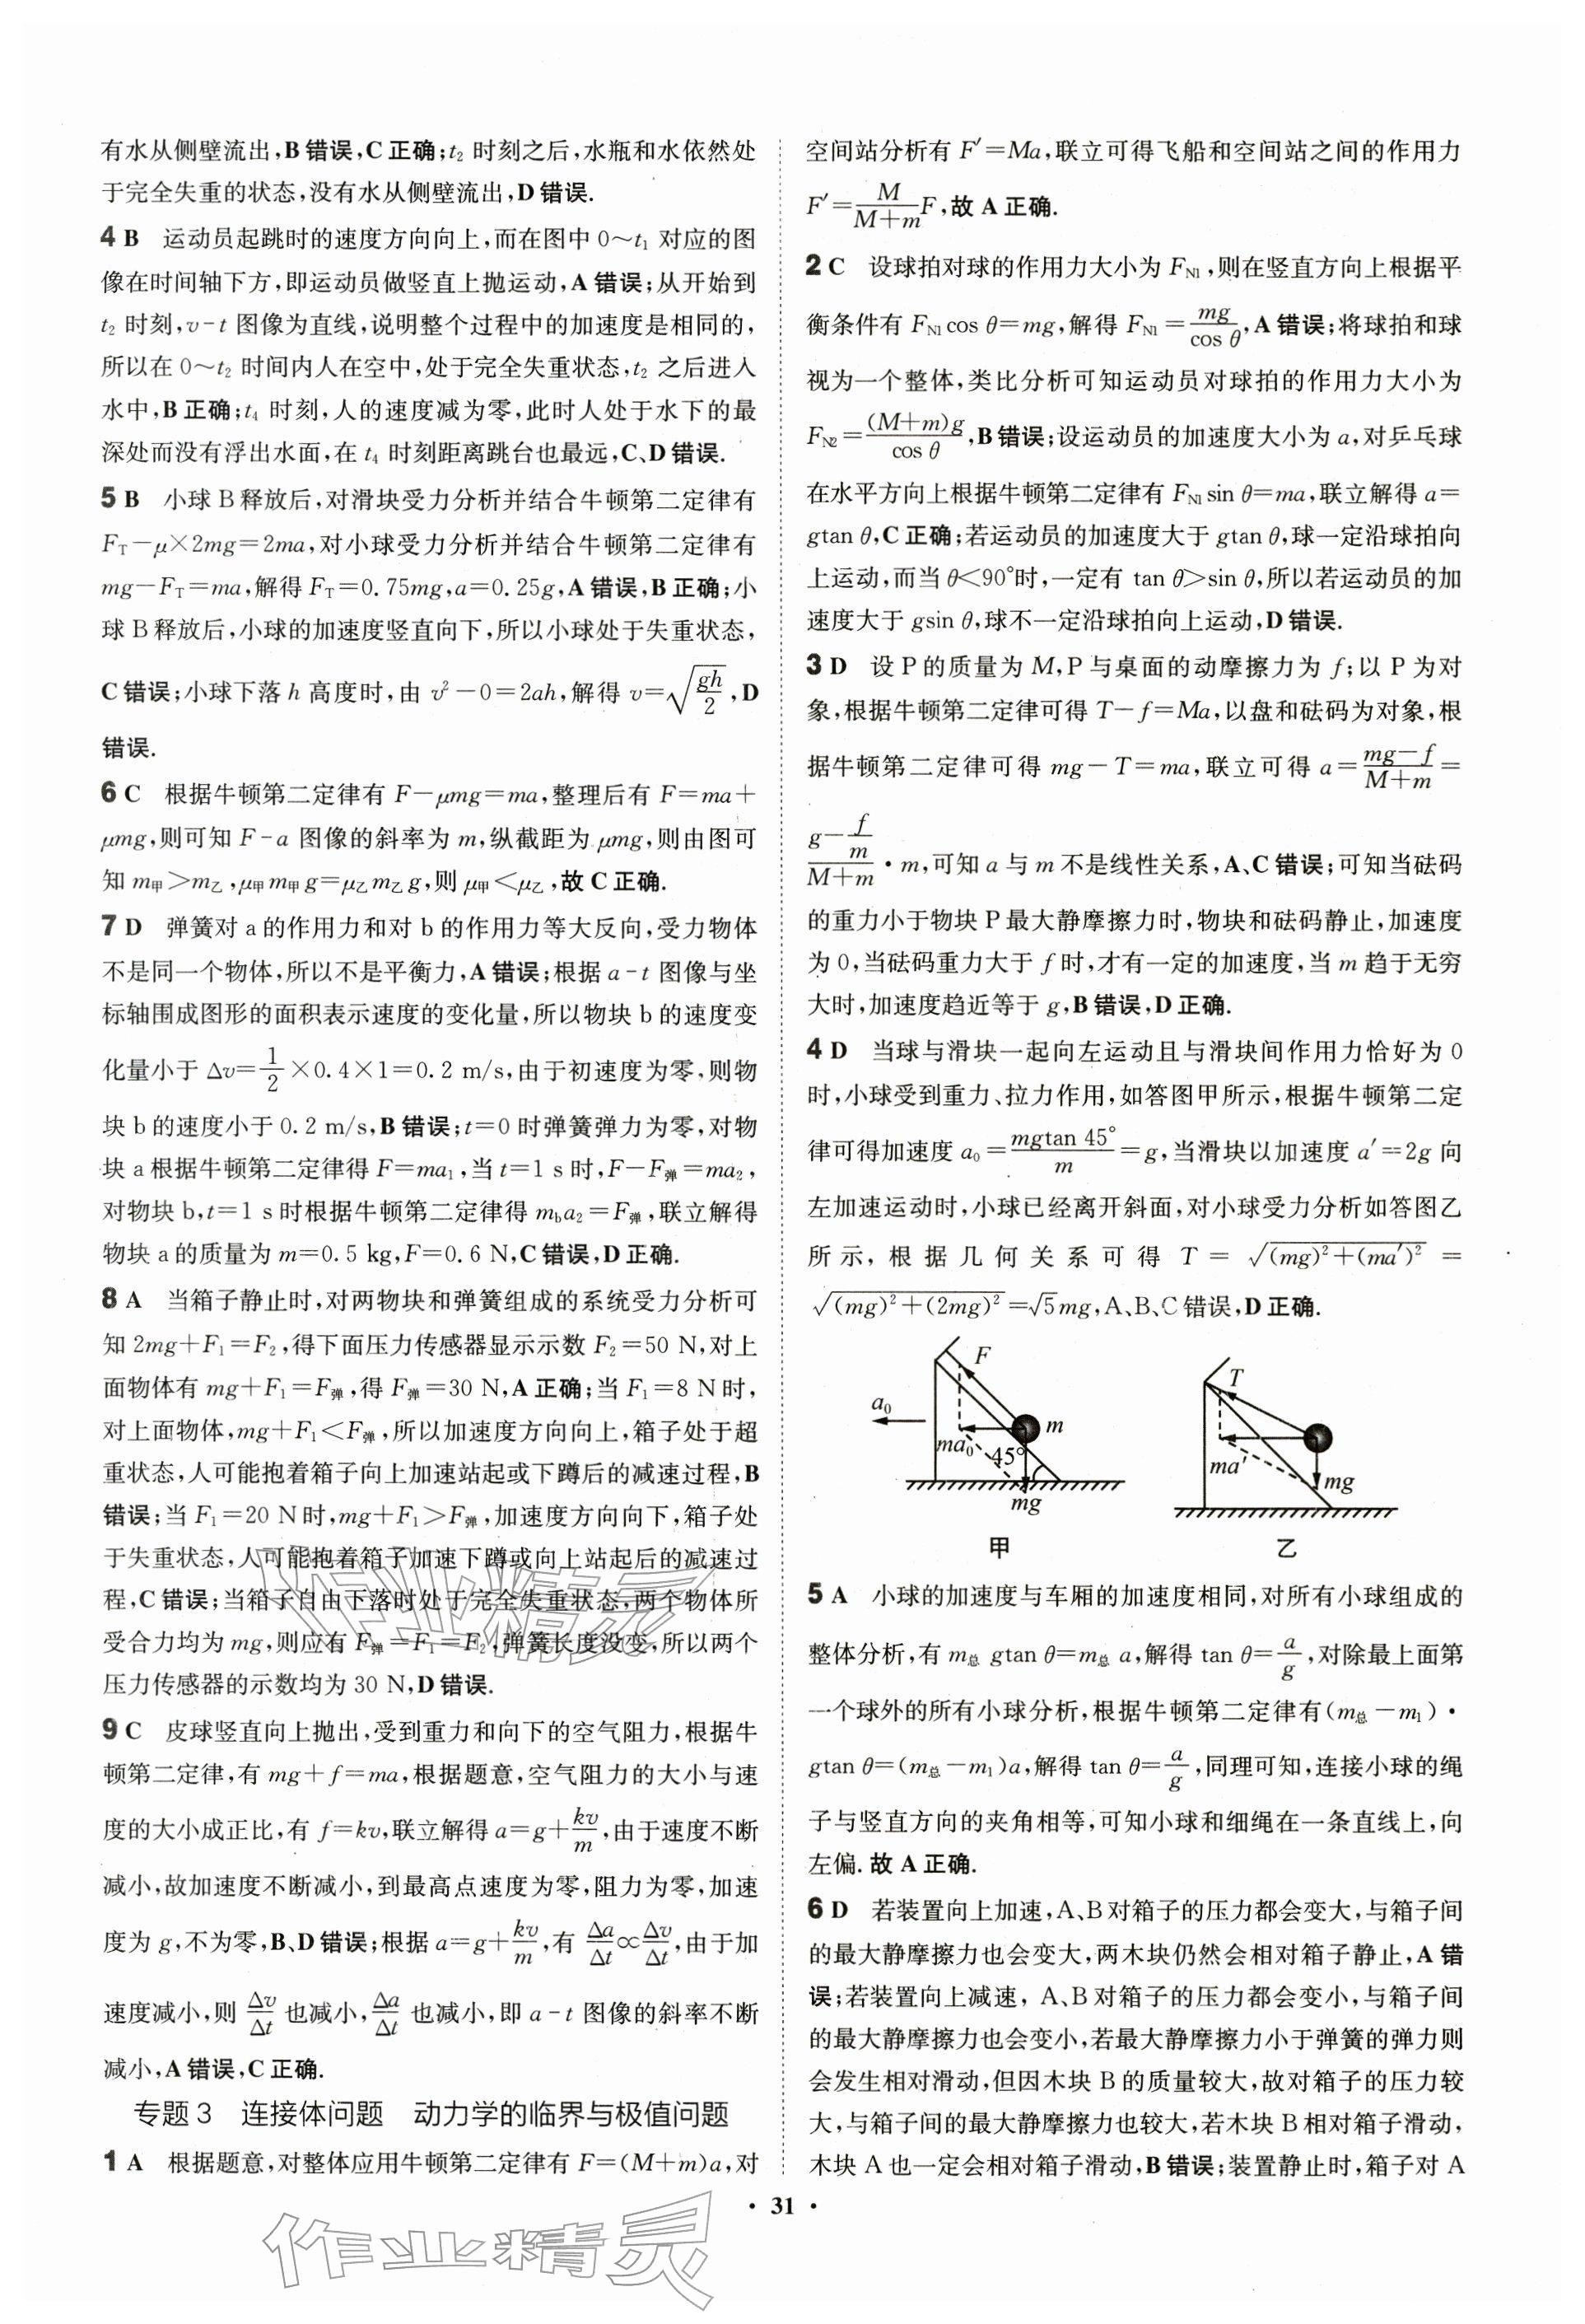 有水从侧壁流出,B错误,C正确;t₂ 时刻之后,水瓶和水依然处
于完全失重的状态,没有水从侧壁流出,D错误.
4 B 运动员起跳时的速度方向向上,而在图中 0～t₁ 对应的图
像在时间轴下方,即运动员做竖直上抛运动,A错误;从开始到
t₂ 时刻,v-t 图像为直线,说明整个过程中的加速度是相同的,
所以在 0～t₂ 时间内人在空中,处于完全失重状态,t₂ 之后进入
水中,B正确;t₄ 时刻,人的速度减为零,此时人处于水下的最
深处而没有浮出水面,在 t₄ 时刻距离跳台也最远,C、D错误.
5 B 小球B释放后,对滑块受力分析并结合牛顿第二定律有
F_T－μ×2mg=2ma,对小球受力分析并结合牛顿第二定律有
mg－F_T=ma,解得 F_T=0.75mg,a=0.25g,A错误,B正确;小
球B释放后,小球的加速度竖直向下,所以小球处于失重状态,
C错误;小球下落 h 高度时,由 v²－0=2ah,解得 v=√(gh/2),D
错误.
6 C 根据牛顿第二定律有 F－μmg=ma,整理后有 F=ma+
μmg,则可知 F-a 图像的斜率为 m,纵截距为 μmg,则由图可
知 m甲>m乙,μ甲m甲g=μ乙m乙g,则 μ甲<μ乙,故C正确.
7 D 弹簧对 a 的作用力和对 b 的作用力等大反向,受力物体
不是同一个物体,所以不是平衡力,A错误;根据 a-t 图像与坐
标轴围成图形的面积表示速度的变化量,所以物块 b 的速度变
化量小于 Δv=1/2×0.4×1=0.2 m/s,由于初速度为零,则物
块 b 的速度小于 0.2 m/s,B错误;t=0 时弹簧弹力为零,对物
块 a 根据牛顿第二定律得 F=ma₁,当 t=1 s 时,F－F弹=ma₂,
对物块 b,t=1 s 时根据牛顿第二定律得 m_b a₂=F弹,联立解得
物块 a 的质量为 m=0.5 kg,F=0.6 N,C错误,D正确.
8 A 当箱子静止时,对两物块和弹簧组成的系统受力分析可
知 2mg+F₁=F₂,得下面压力传感器显示示数 F₂=50 N,对上
面物体有 mg+F₁=F弹,得 F弹=30 N,A正确;当 F₁=8 N 时,
对上面物体,mg+F₁<F弹,所以加速度方向向上,箱子处于超
重状态,人可能抱着箱子向上加速站起或下蹲后的减速过程,B
错误;当 F₁=20 N 时,mg+F₁>F弹,加速度方向向下,箱子处
于失重状态,人可能抱着箱子加速下蹲或向上站起后的减速过
程,C错误;当箱子自由下落时处于完全失重状态,两个物体所
受合力均为 mg,则应有 F弹=F₁=F₂,弹簧长度没变,所以两个
压力传感器的示数均为 30 N,D错误.
9 C 皮球竖直向上抛出,受到重力和向下的空气阻力,根据牛
顿第二定律,有 mg+f=ma,根据题意,空气阻力的大小与速
度的大小成正比,有 f=kv,联立解得 a=g+kv/m,由于速度不断
减小,故加速度不断减小,到最高点速度为零,阻力为零,加速
度为 g,不为零,B、D错误;根据 a=g+kv/m,有 Δa/Δt∝Δv/Δt,由于加
速度减小,则 Δv/Δt 也减小,Δa/Δt 也减小,即 a-t 图像的斜率不断
减小,A错误,C正确.
专题3 连接体问题 动力学的临界与极值问题
1 A 根据题意,对整体应用牛顿第二定律有 F=(M+m)a,对
空间站分析有 F′=Ma,联立可得飞船和空间站之间的作用力
F′=M/(M+m)F,故A正确.
2 C 设球拍对球的作用力大小为 F_N1,则在竖直方向上根据平
衡条件有 F_N1 cos θ=mg,解得 F_N1=mg/cos θ,A错误;将球拍和球
视为一个整体,类比分析可知运动员对球拍的作用力大小为
F_N2=(M+m)g/cos θ,B错误;设运动员的加速度大小为 a,对乒乓球
在水平方向上根据牛顿第二定律有 F_N1 sin θ=ma,联立解得 a=
gtan θ,C正确;若运动员的加速度大于 gtan θ,球一定沿球拍向
上运动,而当 θ<90°时,一定有 tan θ>sin θ,所以若运动员的加
速度大于 gsin θ,球不一定沿球拍向上运动,D错误.
3 D 设 P 的质量为 M,P 与桌面的动摩擦力为 f;以 P 为对
象,根据牛顿第二定律可得 T－f=Ma,以盘和砝码为对象,根
据牛顿第二定律可得 mg－T=ma,联立可得 a=(mg－f)/(M+m)=
(g－f/m)/(M+m)·m,可知 a 与 m 不是线性关系,A、C错误;可知当砝码
的重力小于物块 P 最大静摩擦力时,物块和砝码静止,加速度
为 0,当砝码重力大于 f 时,才有一定的加速度,当 m 趋于无穷
大时,加速度趋近等于 g,B错误,D正确.
4 D 当球与滑块一起向左运动且与滑块间作用力恰好为 0
时,小球受到重力、拉力作用,如答图甲所示,根据牛顿第二定
律可得加速度 a₀=mgtan 45°/m=g,当滑块以加速度 a′=2g 向
左加速运动时,小球已经离开斜面,对小球受力分析如答图乙
所示,根据几何关系可得 T=√((mg)²+(ma′)²)=
√((mg)²+(2mg)²)=√5mg,A、B、C错误,D正确.
F
a₀
m
ma₀
45°
mg
甲
T
ma′
mg
乙
5 A 小球的加速度与车厢的加速度相同,对所有小球组成的
整体分析,有 m总 gtan θ=m总 a,解得 tan θ=a/g,对除最上面第
一个球外的所有小球分析,根据牛顿第二定律有(m总－m₁)·
gtan θ=(m总－m₁)a,解得 tan θ=a/g,同理可知,连接小球的绳
子与竖直方向的夹角相等,可知小球和细绳在一条直线上,向
左偏.故A正确.
6 D 若装置向上加速,A、B对箱子的压力都会变大,与箱子间
的最大静摩擦力也会变大,两木块仍然会相对箱子静止,A错
误;若装置向上减速,A、B对箱子的压力都会变小,与箱子间
的最大静摩擦力也会变小,若最大静摩擦力小于弹簧的弹力则
会发生相对滑动,但因木块 B 的质量较大,故对箱子的压力较
大,与箱子间的最大静摩擦力也较大,若木块 B 相对箱子滑动,
木块 A 也一定会相对箱子滑动,B错误;装置静止时,箱子对 A
· 31 ·
作业精灵
作业精灵